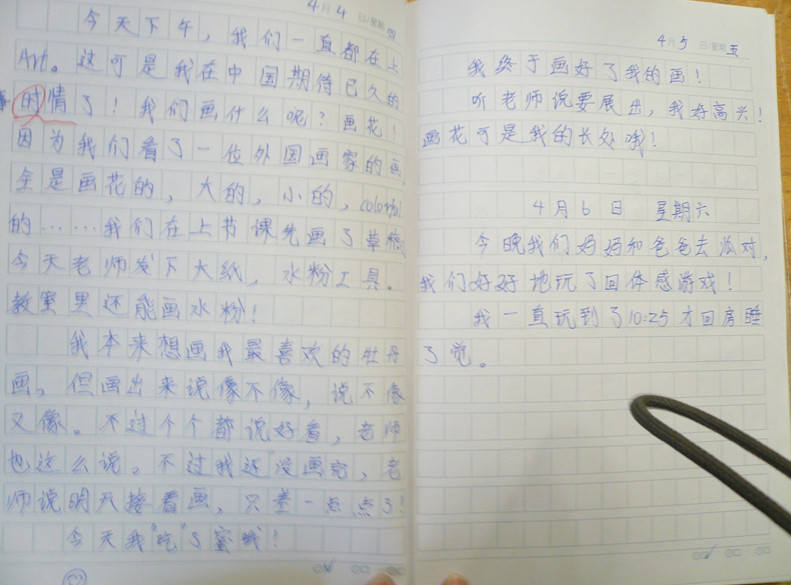 4月4日/星期四
今天下午，我们一直都在上
Art。这可是我在中国期待已久的
事情了！我们画什么呢？画花！
因为我们看了一位外国画家的画，
全是画花的，大的，小的，colorful
的……我们在上节课先画了草稿，
今天老师发下大纸，水粉工具。
教室里还能画水粉！
我本来想画我最喜欢的牡丹
画，但画出来说像不像，说不像
又像。不过个个都说好看，老师
也这么说。不过我还没画完，老
师说明天接着画，只差一点点了！
今天我"吃"了蜜蜂！
4月5日/星期五
我终于画好了我的画！
听老师说要展出，我好高兴！
画花可是我的长处哦！
4月6日 星期六
今晚我们妈妈和爸爸去派对，
我们好好地玩了回体感游戏！
我一直玩到了10:25才回房睡
了觉。